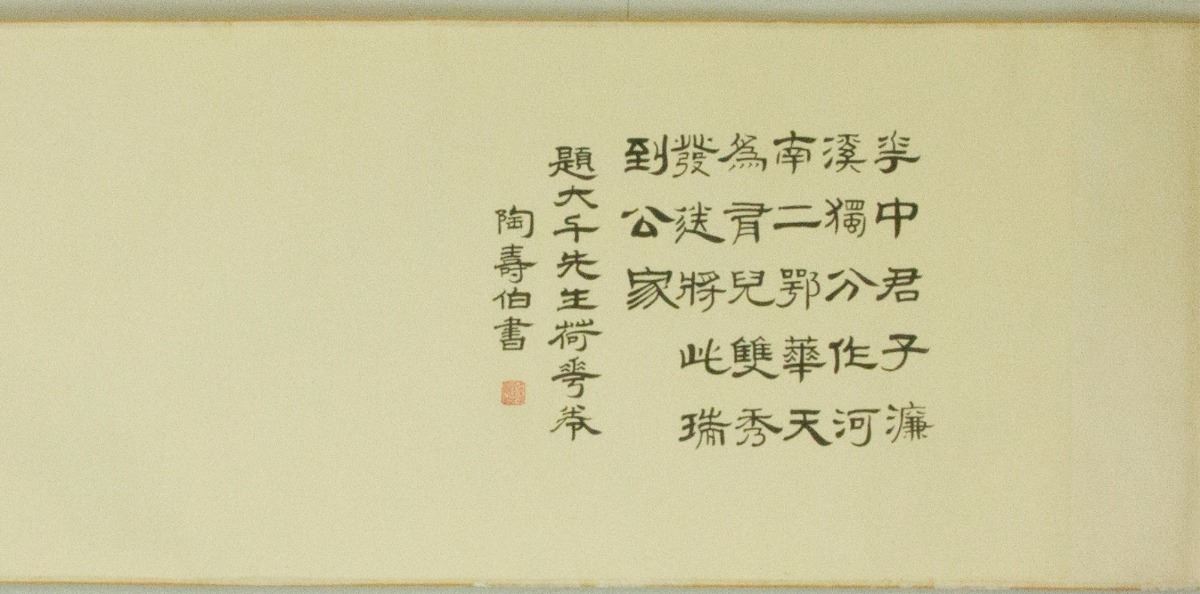 花中君子濂
溪獨分作河
南二鄂華天
為胥兒雙秀
發送將此瑞
到公家
題大千先生荷花卷
陶壽伯書